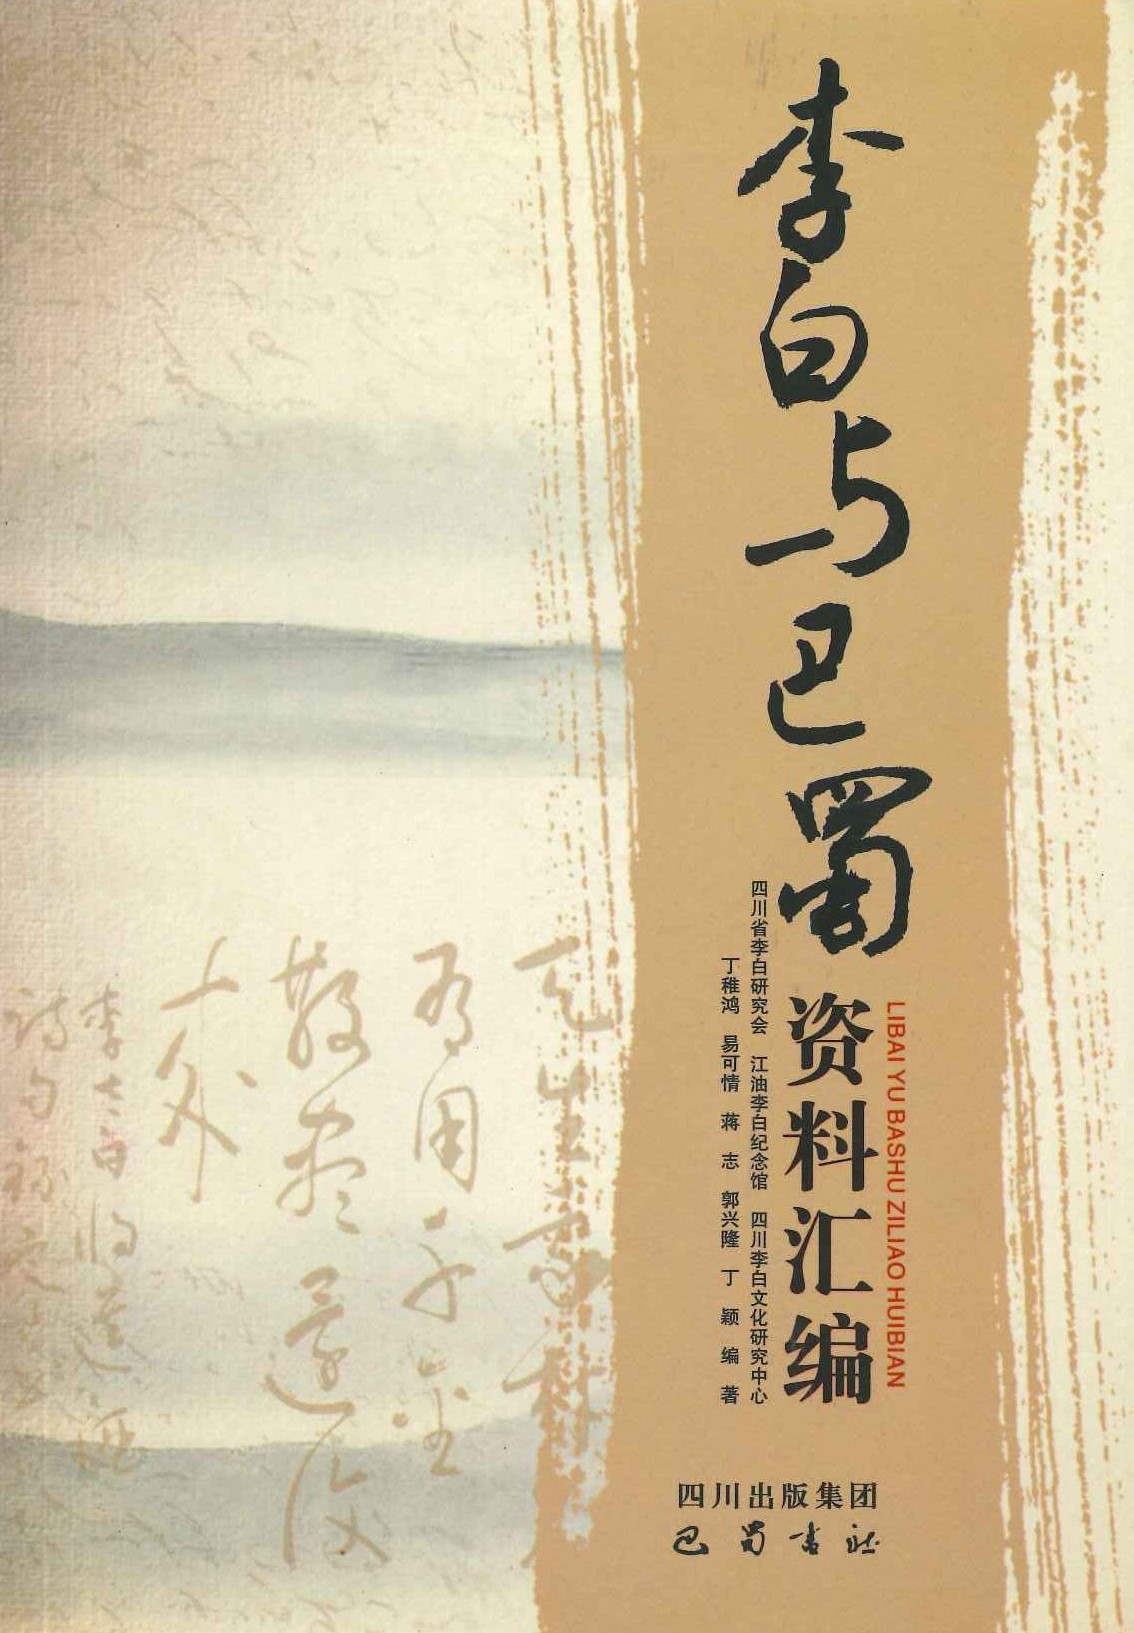 李白与巴蜀
资料汇编
LIBAI YU BASHU ZILIAO HUIBIAN
四川省李白研究会 江油李白纪念馆 四川李白文化研究中心
丁稚鸿 易可情 蒋志 郭兴隆 丁颖 编著
四川出版集团
巴蜀书社
天生我材
有用千金
散尽还复
李太白将进酒